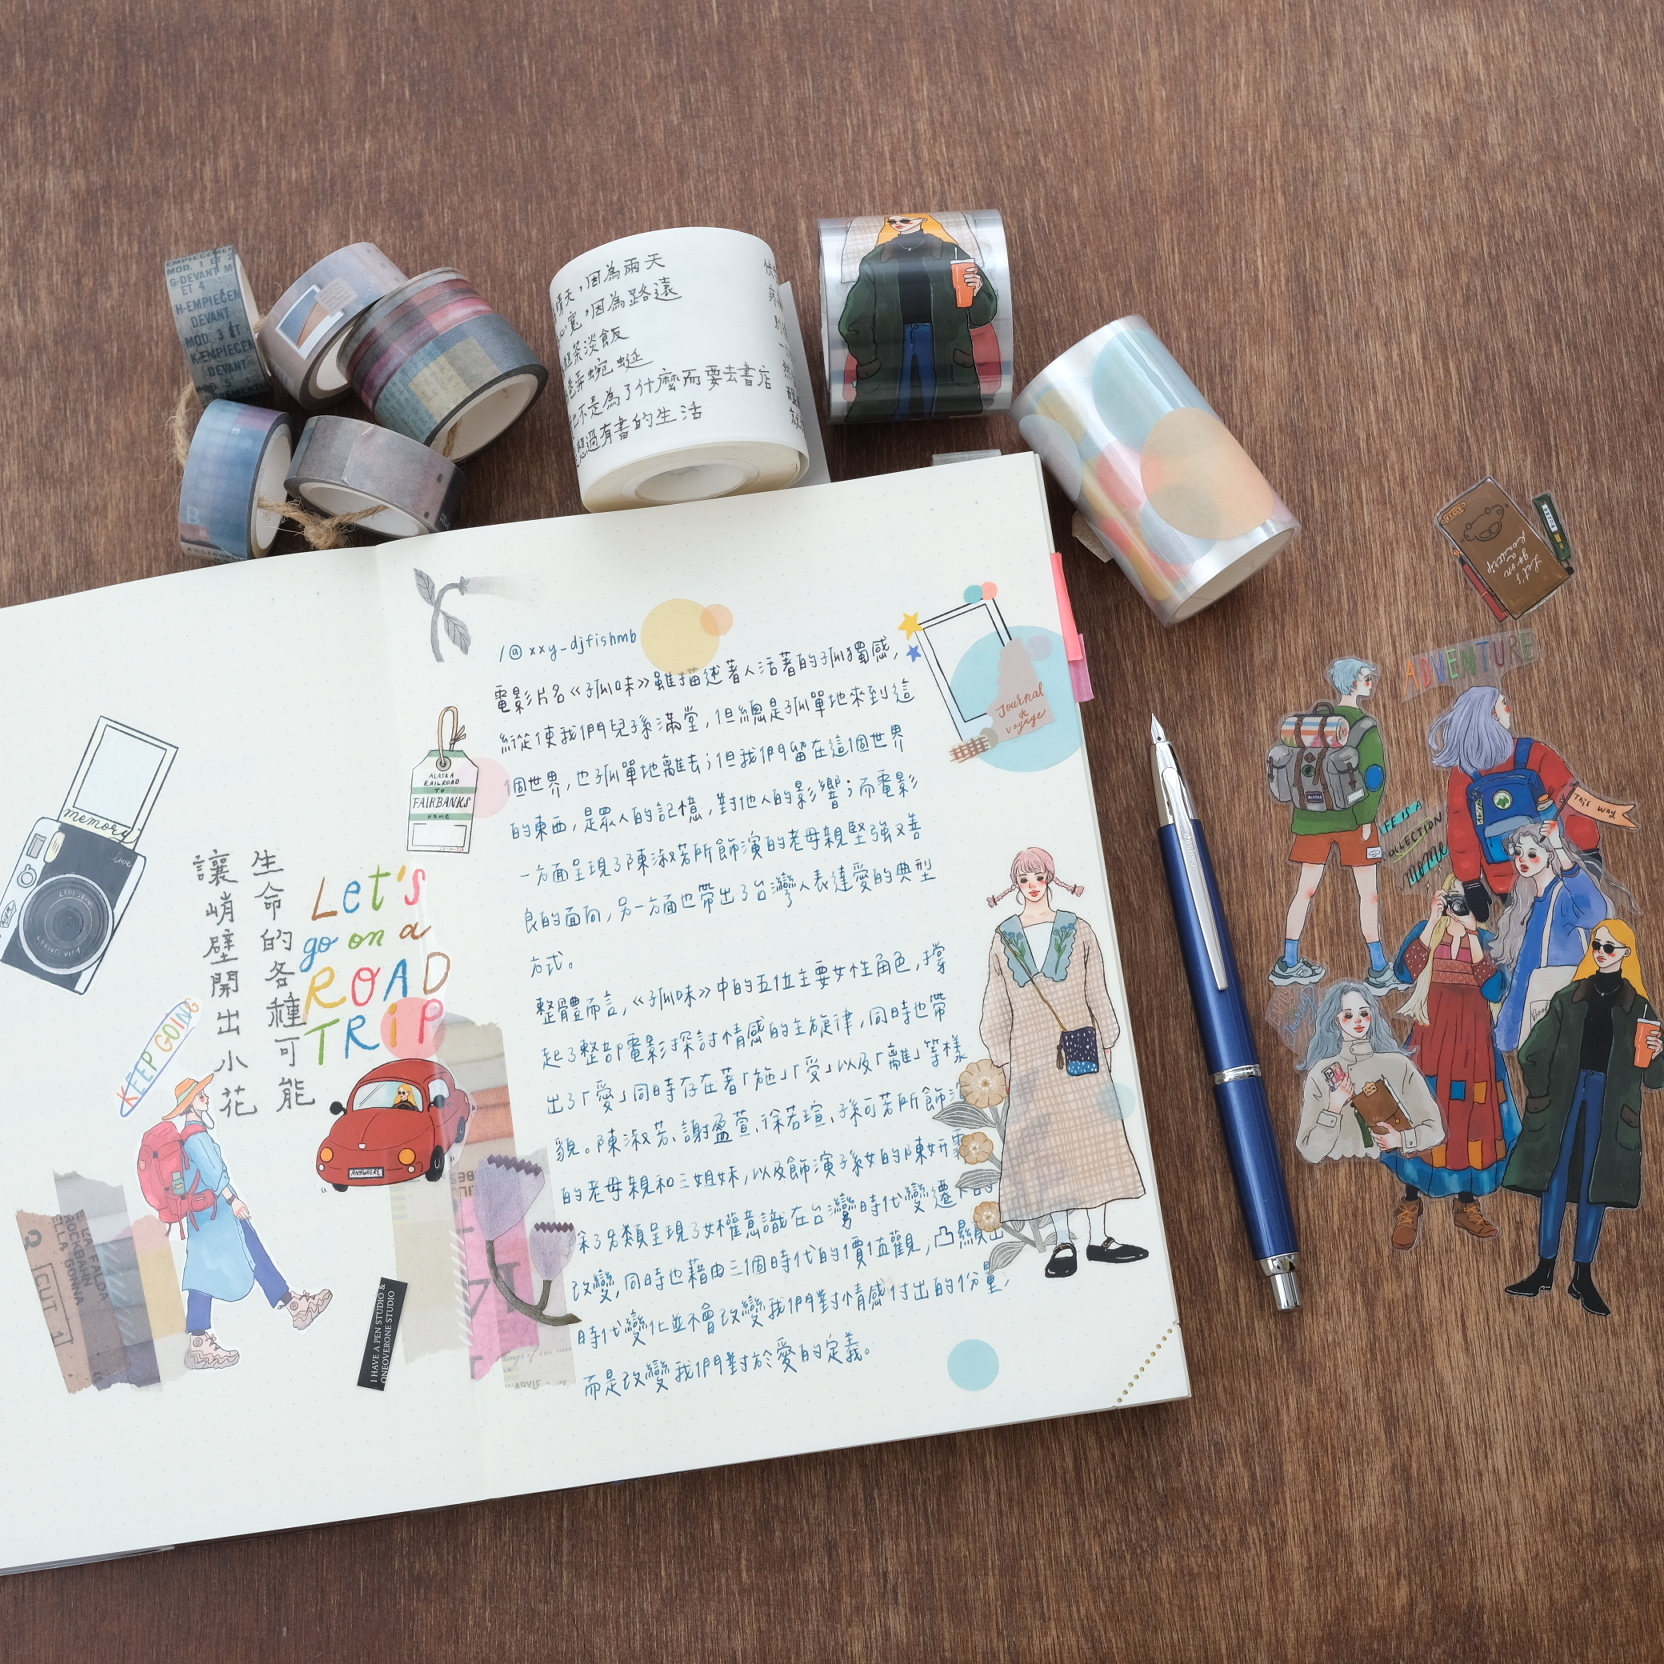 EMPIECEMENT
MOD. 1 ET 2
G-DEVANT M
ET 4
H-EMPIECEN
DEVANT
MOD. 3 ET
K-EMPIECEN
DEVANT
MOD. 5
晴天，因為雨天
心寬，因為路遠
粗茶淡飯
巷弄蜿蜒
也不是為了什麼而要去書店
想過有書的生活
memory
讓峭壁開出小花
生命的各種可能
Let's
go on a
ROAD
TRiP
KEEP GOING
ANYWHERE
CUT 1
I HAVE A PEN STUDIO &
ONEOVERONE STUDIO
ALASKA
RAILROAD
TO
FAIRBANKS
/@xxy_djfishmb
電影片名《孤味》雖描述著人活著的孤獨感，
縱使我們兒孫滿堂，但總是孤單地來到這
個世界，也孤單地離去；但我們留在這個世界
的東西，是眾人的記憶，對他人的影響；而電影
一方面呈現了陳淑芳所飾演的老母親堅強又善
良的面向，另一方面也帶出了台灣人表達愛的典型
方式。
整體而言，《孤味》中的五位主要女性角色，撐
起了整部電影探討情感的主旋律，同時也帶
出了「愛」同時存在著「施」「受」以及「離」等樣
貌。陳淑芳、謝盈萱、徐若瑄、孫可芳所飾演
的老母親和三姐妹，以及飾演孫女的陳妍霏
深刻類呈現了女權意識在台灣時代變遷下的
改變，同時也藉由三個時代的價值觀，凸顯出
時代變化並不會改變我們對情感付出的份量，
而是改變我們對於愛的定義。
Journal
&
voyage
Let's
go on a
ROADTRIP
ADVENTURE
LIFE IS A
COLLECTION
OF
This way